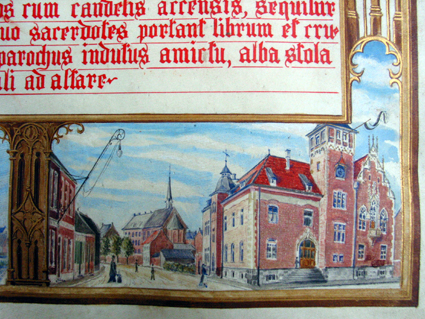 os cum candelis accensis, sequitur
uo sacerdotes portant librum et cru-
parochus indutus amictu, alba stola
ali ad altare.